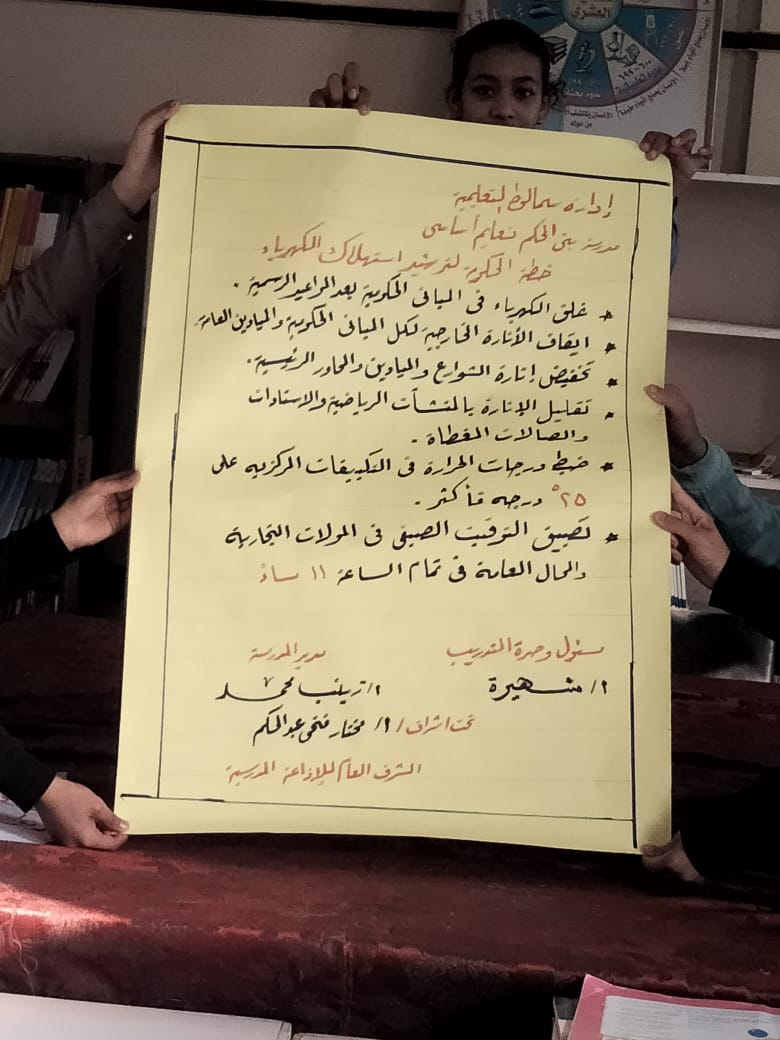 العشري
إدارة سمالوط التعليمية
مدرسة بنى الحكم تعليم أساسى
خطة الحكومة لترشيد استهلاك الكهرباء
* غلق الكهرباء فى المبانى الحكومية بعد المواعيد الرسمية .
* ايقاف الأنارة الخارجية لكل المبانى الحكومية والميادين العامة.
* تخفيض إنارة الشوارع والميادين والمحاور الرئيسية .
* تقليل الإنارة بالمنشأت الرياضية والاستادات
والصالات المغطاة .
* ضبط درجات الحرارة فى التكييفات المركزيه على
٢٥° درجه فأكثر .
* تطبيق التوقيت الصيفى فى المولات التجارية
والمحال العامة فى تمام الساعة ١١ مساءً
مسئول وحدة التدريب
مدير المدرسة
ا/ شهيرة
ا/ زينب محمد
تحت اشراف / ا/ مختار فتحى عبدالحكم
المشرف العام للإذاعة المدرسية